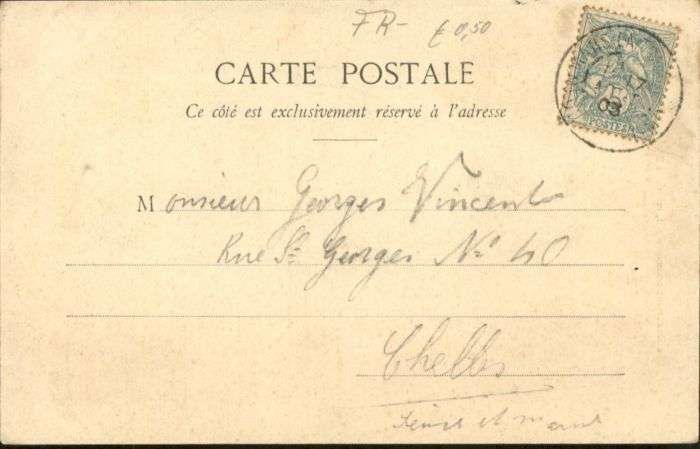 FR- € 0,50
CARTE POSTALE
Ce côté est exclusivement réservé à l'adresse
Monsieur Georges Vincent
Rue St Georges No 40
Chelles
Seine et Marne
03